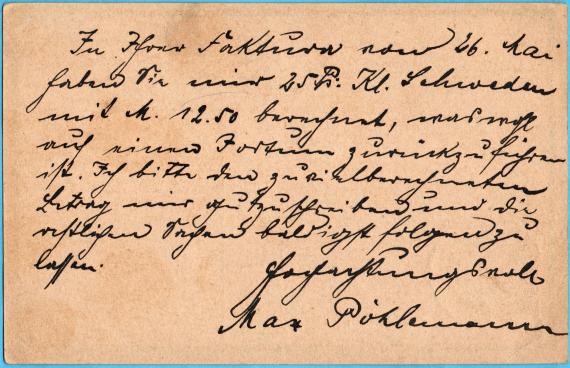 In Ihrer Faktura vom 26. Mai
haben Sie mir 25 Pf. Kl. Schweden
mit M. 12.50 berechnet, was wohl
auf einen Irrtum zurückzuführen
ist. Ich bitte den zuvielberechneten
Betrag mir gutzuschreiben und die
restlichen Sachen baldigst folgen zu
lassen.
Hochachtungsvoll
Max Pöhlmann